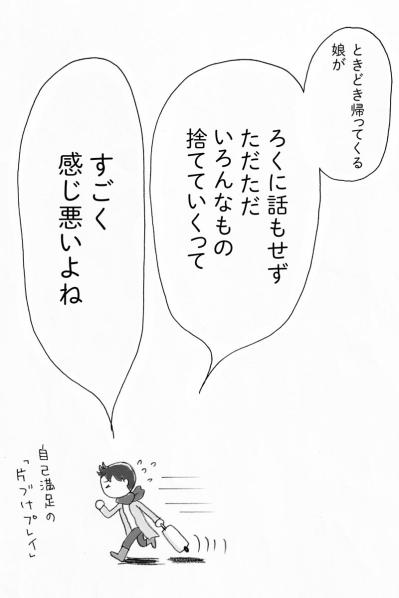 ときどき帰ってくる
娘が
ろくに話もせず
ただただ
いろんなもの
捨てていくって
すごく
感じ悪いよね
自己満足の
「片づけプレイ」